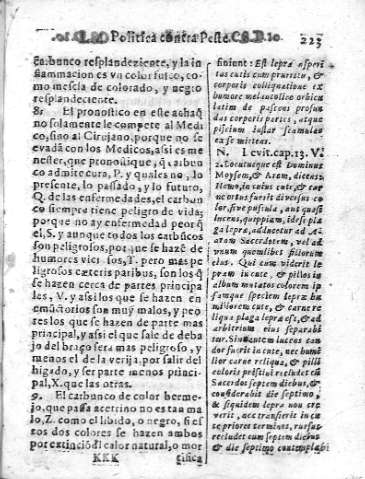 Politica contra Peste.
223
carbunco resplandeziente, y la in
flammacion es vn color fusco, co-
mo mescla de colorado, y negro
resplandeciente.
8. El pronostico en este achaq̃
no solamente le compete al Medi
co, sino al Cirujano. porque no se
evadã con los Medicos, asi es me
nester, que pronostique, q̃ carbun
co admite cura, P. y qual es no, lo
presente, lo passado, y lo futuro,
Q. de las enfermedades, el carbun
co siempre tiene peligro de vida;
porque no ay enfermedad peor q̃
el, S. y aunque todos los carbũcos
son peligrosos, por que se hazẽ de
humores viciosos, T. pero mas pe
ligrosos cæteris paribus, son los q̃
se hazen cerca de partes principa
les, V. y assi los que se hazen en
emũctorios son muy malos, y peo
res los que se hazen de parte mas
principal, y assi el que sale de deba
jo del braço sera mas peligroso, y
menos el de la verija, por salir del
higado, y ser parte menos princi-
pal, X. que las otras.
9. El carbunco de color berme
jo, que passa acetrino no es tau ma
lo, Z. como el libido, o negro, si es
tos dos colores se hazen ambos
por extinciõ dl calor natural, o mor
KKK
tifica
finiunt: Est lepra asperi
tas cutis cum pruritu, &
corporis colliquatione ex
humore melancolico orbicu
latim de pasceus profun
das corporis partes, atque
piscium instar squamulas
ex se mittens.
N. Levit. cap. 13. V.
2. Locutusque est Dominus
Moysem, & Aron, dicens:
Homo, in cuius cute, & car
ne ortus fuerit diversus co
lor, sive pustula, aut quasi
lucens, quippiam, id est pla
ga lepræ, adducetur ad Aa
ron Sacerdotem, vel ad
unum quemlibet filiorum
eius. Qui cum viderit le
pram in cute, & pillos in
album mutatos colorem ip
samque speciem lepræ hu
miliorem cute, & carne re
liqua plaga lepræ est, & ad
arbitrium eius separabi
tur. Sin autem lucens can
dor fuerit in cute, nec humi
lior carne reliqua, & pilli
coloris pristini recludet eum
Sacerdos septem diebus, &
considerabit die septimo,
& siquidem lepra non cre
verit, nec transierit in cu
te priores terminos, rursus
recludet eum septem diebus
& die septimo contemplabi